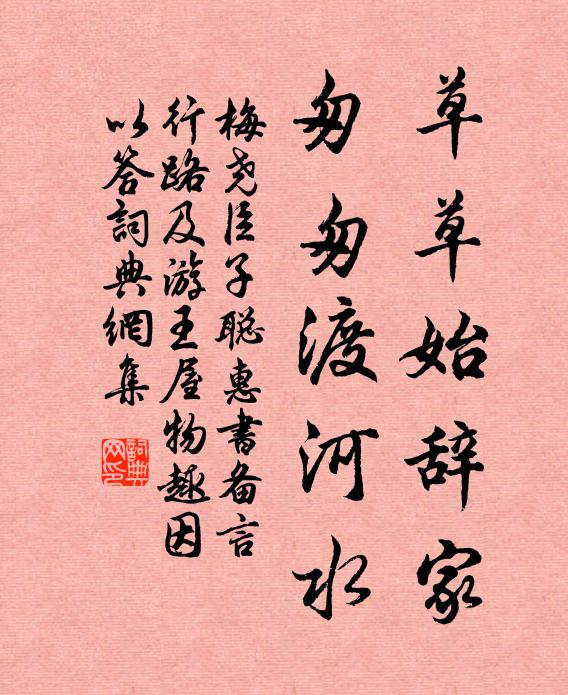 草草始辞家
匆匆渡河水
梅尧臣子聪惠书备言
行路及游王屋物趣因
以答詞典網集
詞典
网印